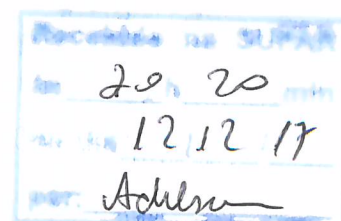 Recebido na SUPAR
às 20 h 20 min
12 12 17
por: